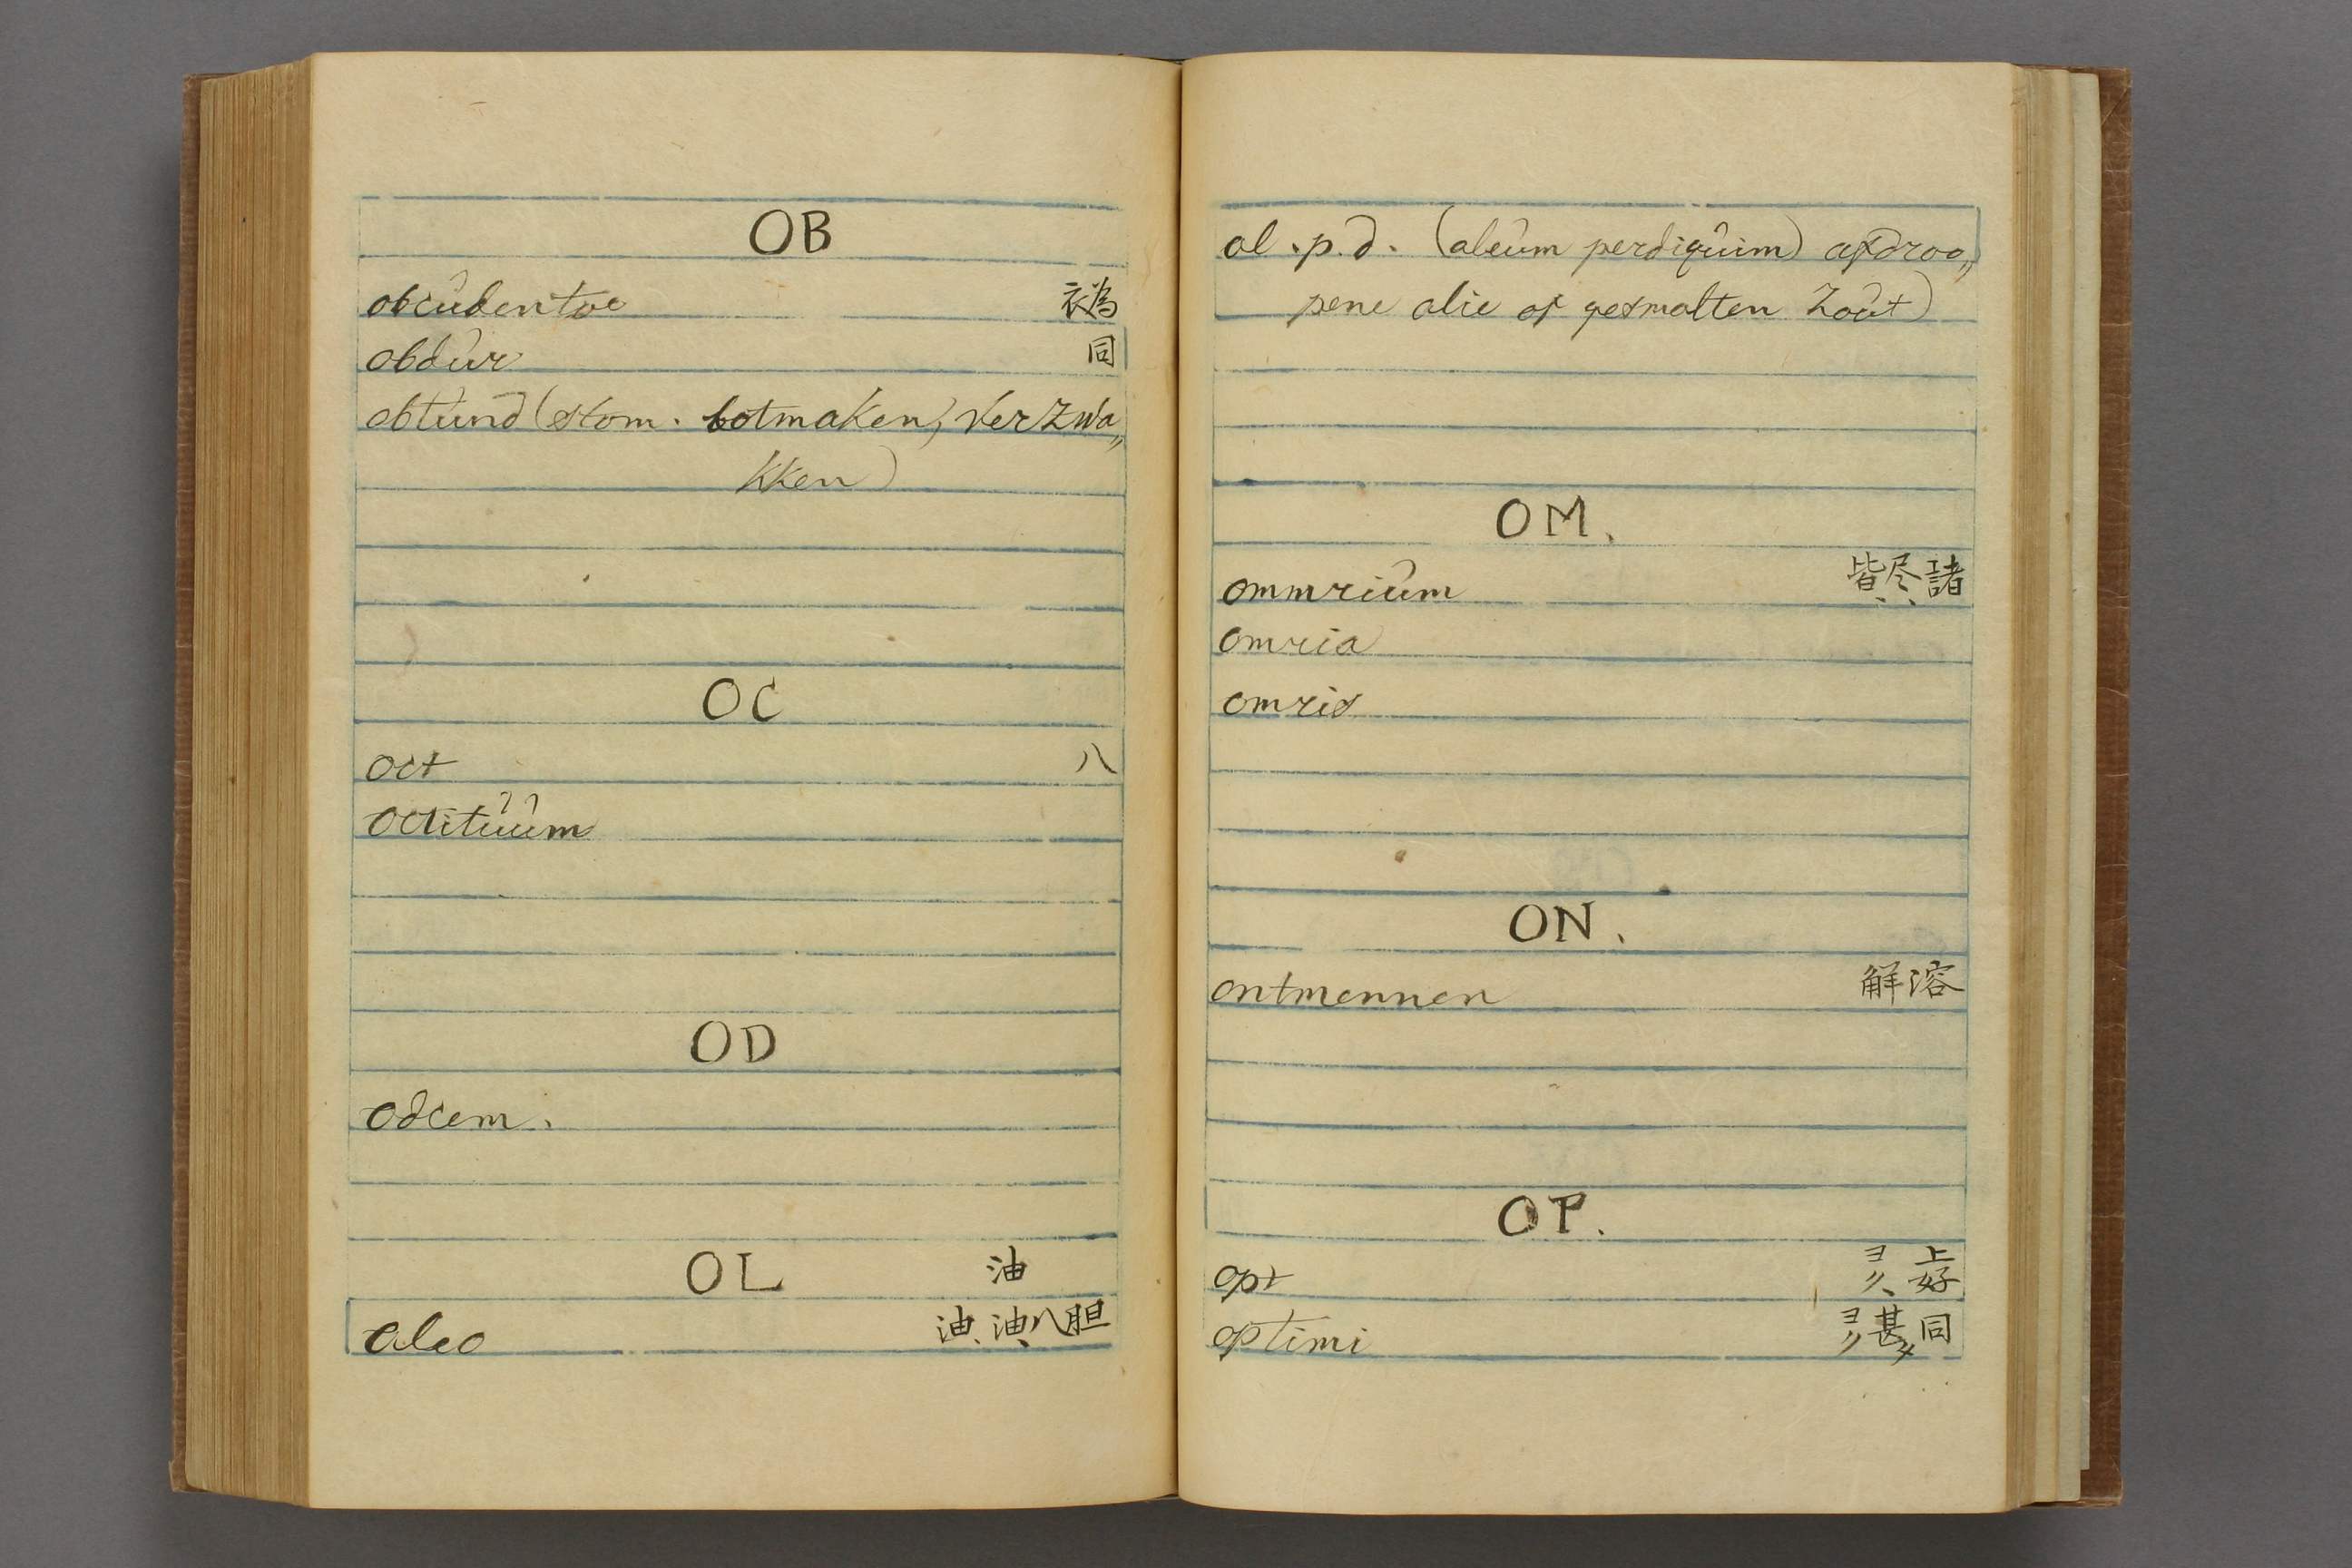 OB
obcûbentoe 為衣
obdûr 同
obtûnd (stom. botmaken, verzwa„
kken)
OC
oct 八
octitûûm
OD
odcem.
OL 油
oleo 油、油、八胆
ol. p. d. (oleûm perdiqûim) afdroo„
pene olie of gesmolten zoût)
OM.
ommriûm 皆、尽、諸
omria
omris
ON.
ontmennen 解溶
OP.
opt ヨリ、上好
optimi ヨリ甚タ同